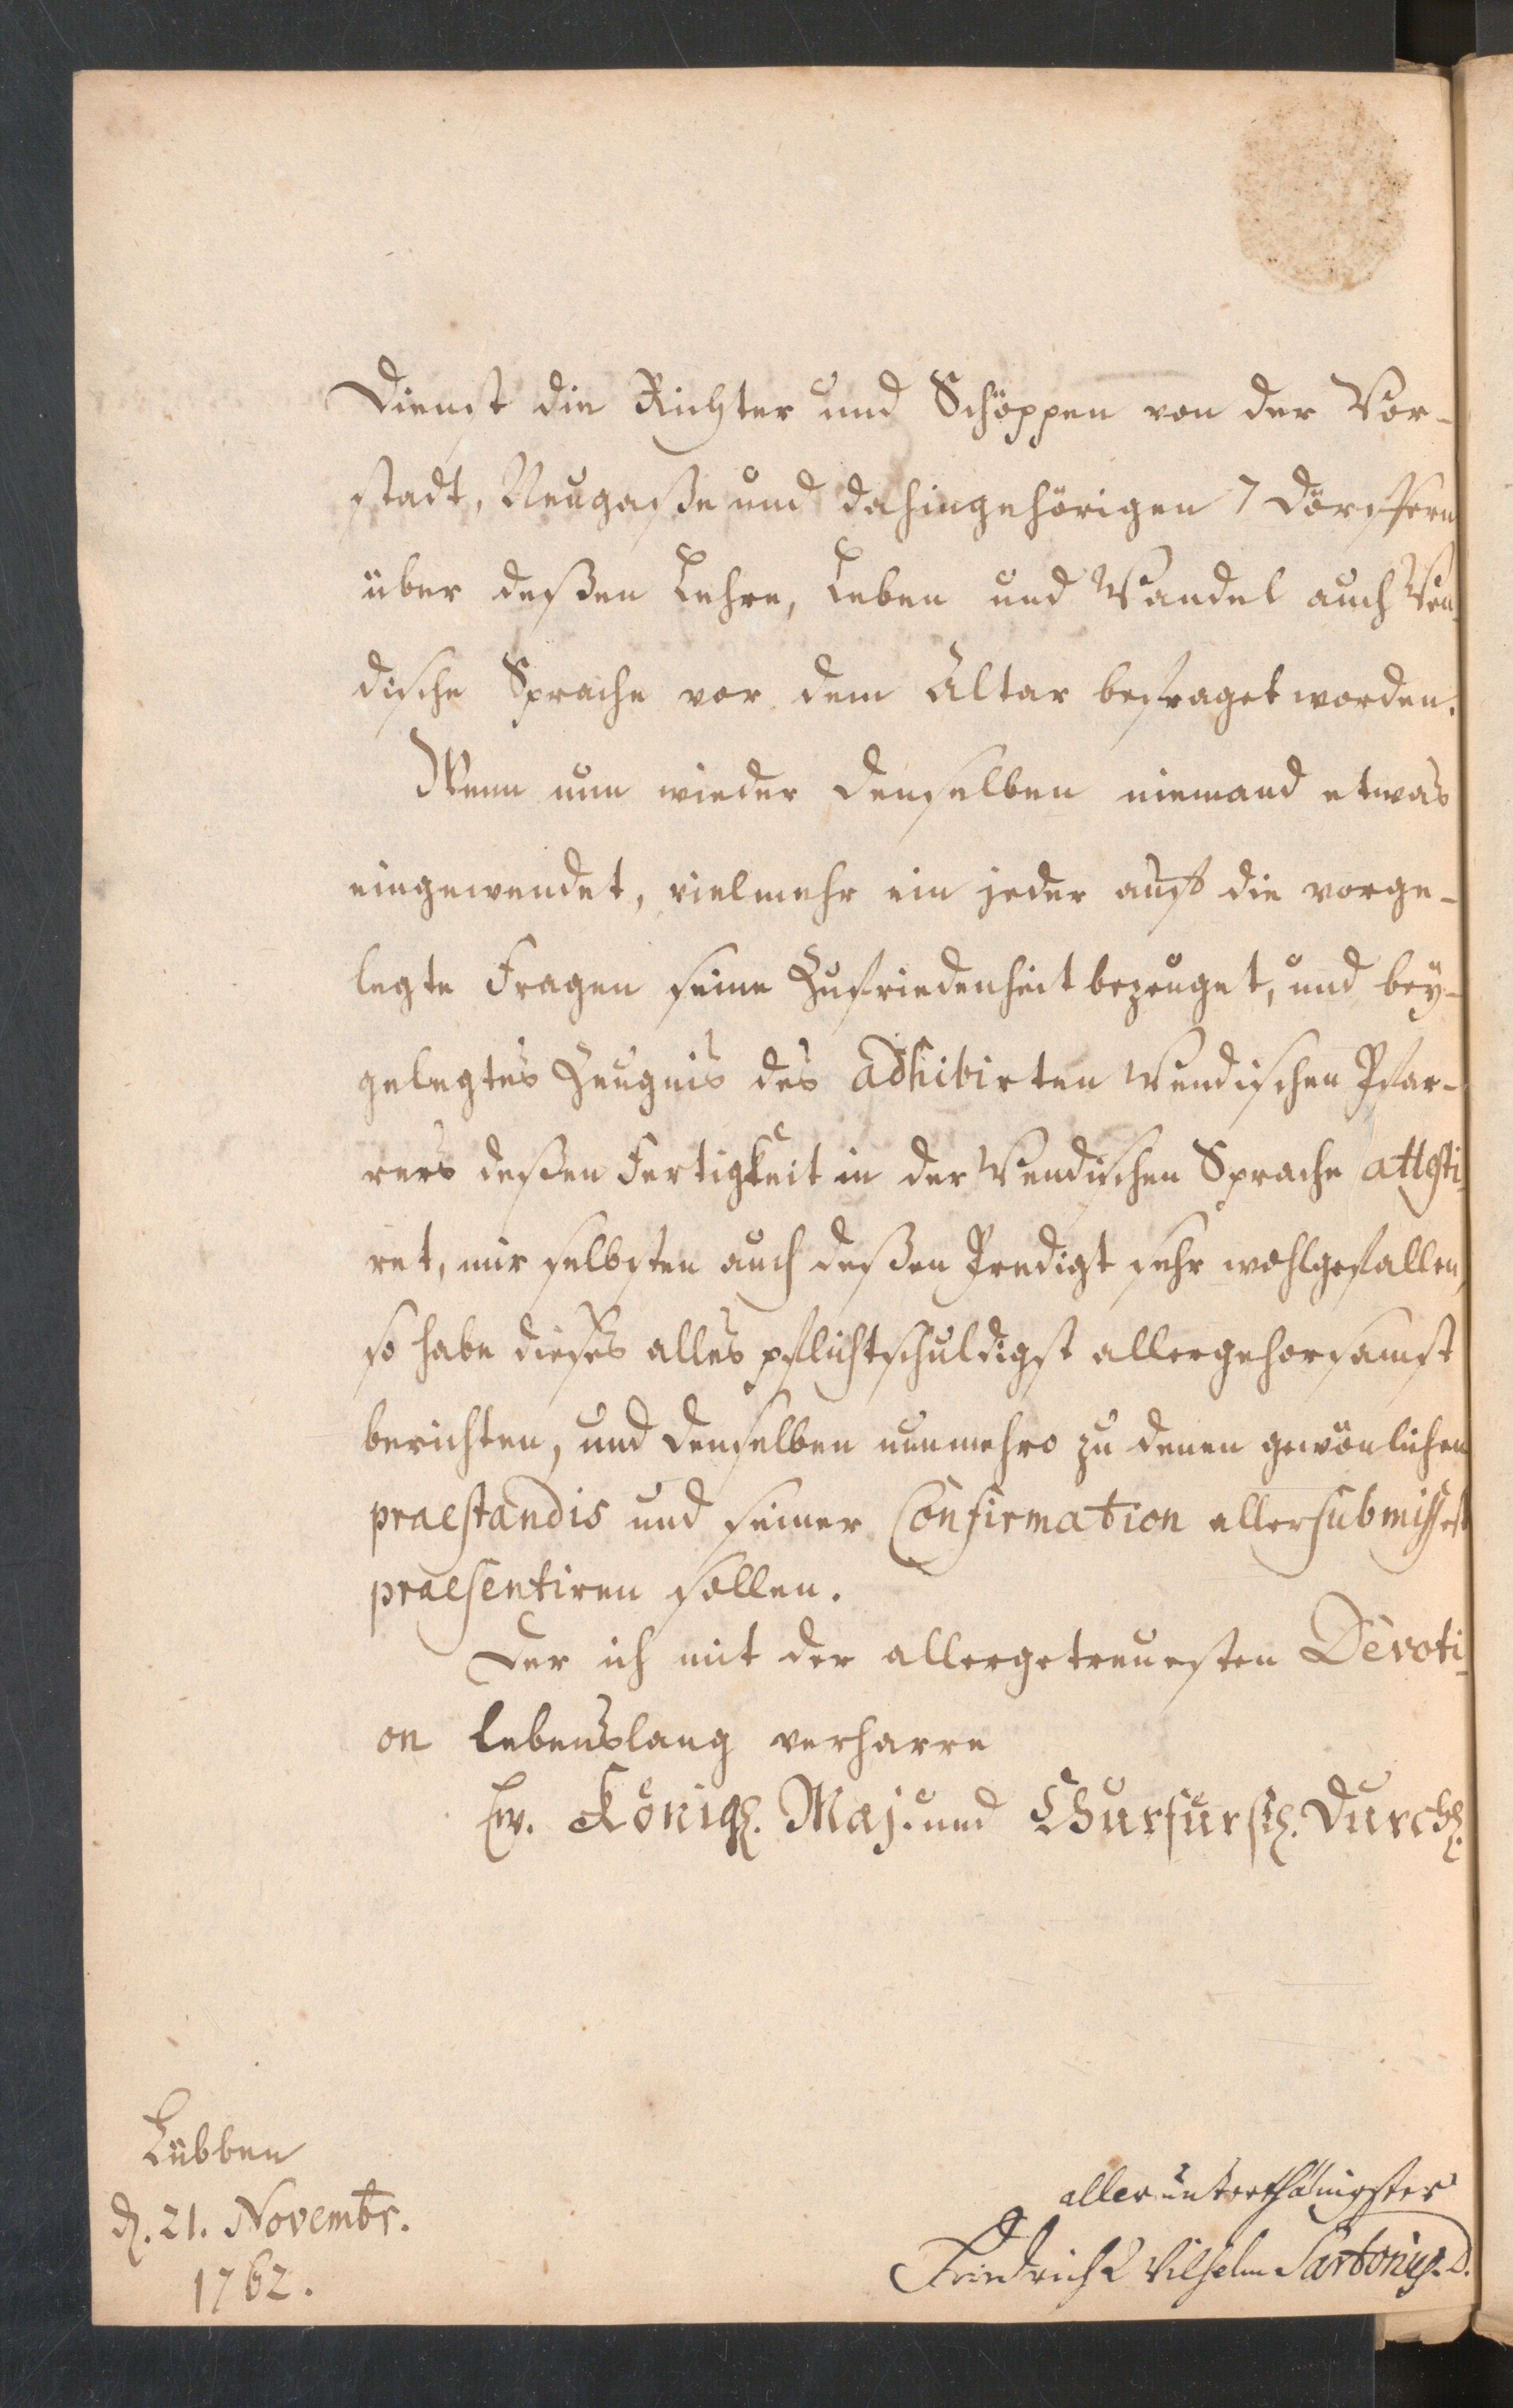 Dienst die Richter und Schöppen von der Vor-
stadt, Neugaße und dahingehörigen 7 Dörffern
über deßen Lehre, Leben und Wandel auch Wen-
dische Sprache vor dem Altar befraget worden.
Wenn nun wieder denselben niemand etwas
eingewendet, vielmehr ein jeder auff die vorge-
legte Fragen seine Zufriedenheit bezeuget, und bey-
gelegtes Zeugnis des adhibirten Wendischen Pfar-
rers deßen Fertigkeit in der Wendischen Sprache attesti-
ret, mir selbsten auch deßen Predigt sehr wohlgefallen,
so habe dieses alles pflichtschuldigst allergehorsamst
berichten, und denselben nunmehro zu denen gewönlichen
praestandis und seiner Confirmation allersubmissest
praesentiren sollen.
Der ich mit der allergetreuesten Devoti-
on lebenslang verharre
Ew. Königl. Maj. und Churfürstl. Durchl.
Lübben
d. 21. Novembr.
1762.
allerunterthänigster
Friedrich Wilhelm Sartorius. D.